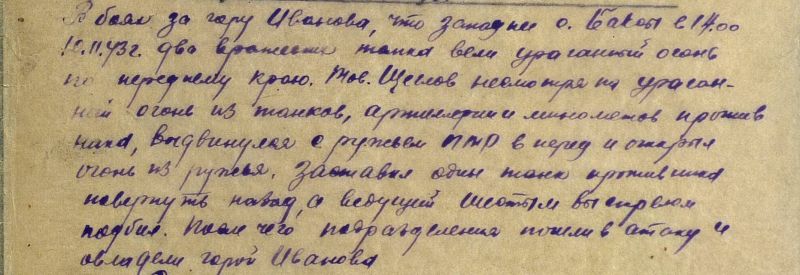 В боях за гору Иванова, что западнее о. Баксы в 14.00
10.11.43г. два вражеских танка вели ураганный огонь
по переднему краю. Тов. Щеглов несмотря на ураган-
ный огонь из танков, артиллерии и минометов против
ника, выдвинулся с ружьем ПТР в перед и открыл
огонь из ружья. Заставил один танк противника
повернуть назад, а ведущий шестым выстрелом
подбил. После чего подразделения пошли в атаку и
овладели горой Иванова